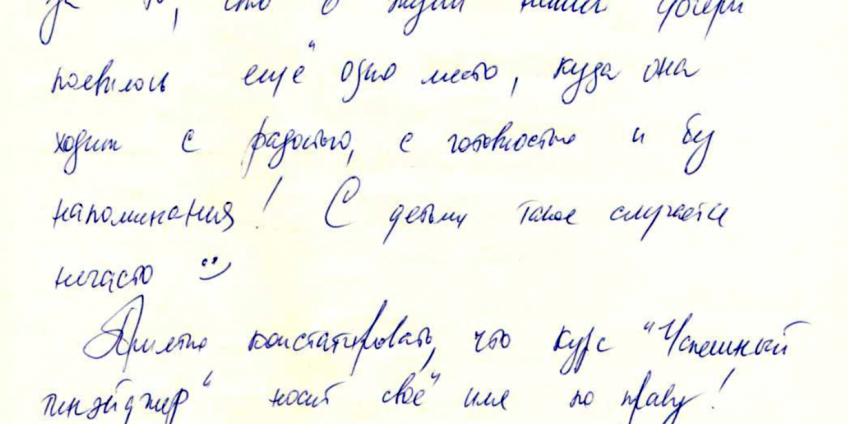 за то, что в жизни нашей дочери
появилось ещё одно место, куда она
ходит с радостью, с готовностью и без
напоминания! С детьми такое случается
нечасто :)
Приятно констатировать, что курс "Успешный
тинэйджер" носит своё имя по праву!